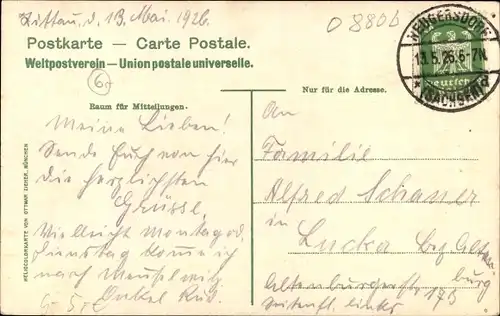 Zittau, d. 13. Mai. 1926.
O 880b
Postkarte — Carte Postale.
Weltpostverein — Union postale universelle.
6,-
NEUGERSDORF
13.5.26.6-7N.
* (SACHSEN) *
Raum für Mitteilungen.
Nur für die Adresse.
Meine Lieben!
Sende Euch von hier
die herzlichsten
Grüsse,
Vielleicht Montag od.
Dienstag komme ich
nach Meuselwitz
Onkel Rud.
An
Familie
Alfred Schauer
in
Lucka Bz. Alten-
burg
Altenburgerstr. 175
links
HELIOCOLORKARTE VON OTTMAR ZIEHER, MÜNCHEN